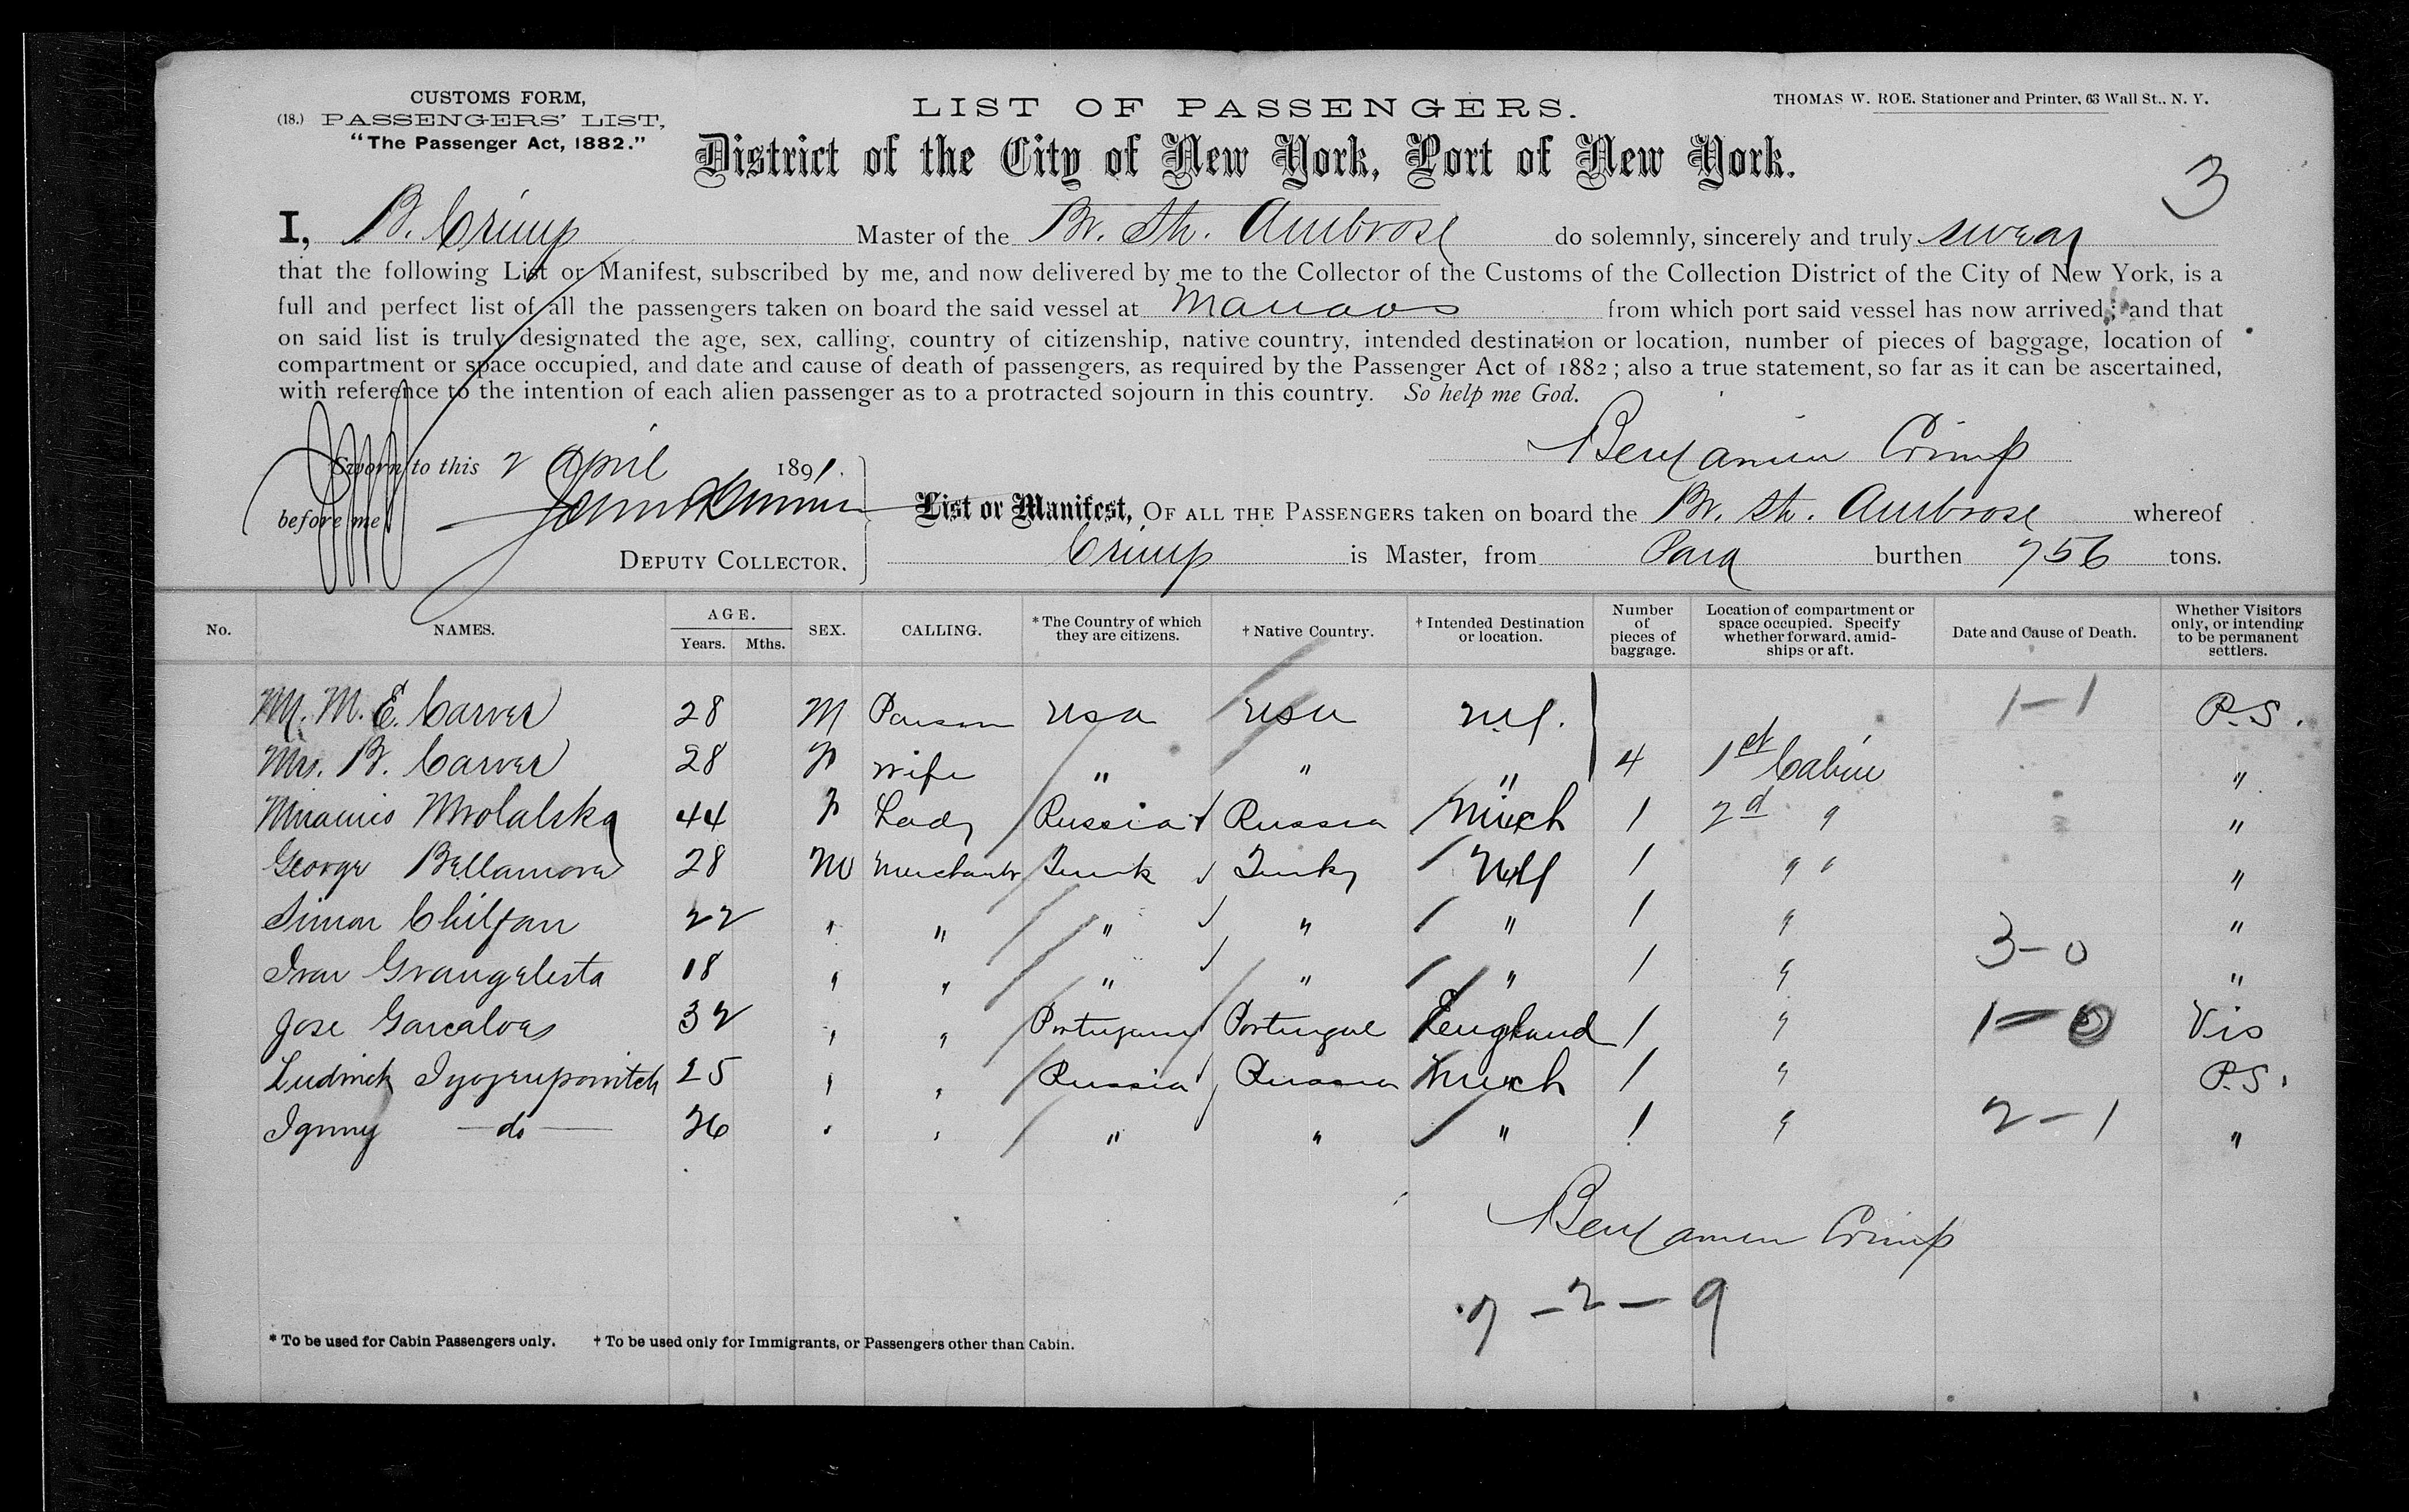 CUSTOMS FORM,
(18.) PASSENGERS' LIST,
"The Passenger Act, 1882."
LIST OF PASSENGERS.
THOMAS W. ROE, Stationer and Printer, 63 Wall St., N. Y.
District of the City of New York, Port of New York.
3
I, B. Crimp Master of the Br. Str. Ambrose do solemnly, sincerely and truly swear
that the following List or Manifest, subscribed by me, and now delivered by me to the Collector of the Customs of the Collection District of the City of New York, is a
full and perfect list of all the passengers taken on board the said vessel at Manaos from which port said vessel has now arrived; and that
on said list is truly designated the age, sex, calling, country of citizenship, native country, intended destination or location, number of pieces of baggage, location of
compartment or space occupied, and date and cause of death of passengers, as required by the Passenger Act of 1882; also a true statement, so far as it can be ascertained,
with reference to the intention of each alien passenger as to a protracted sojourn in this country. So help me God.
Benjamin Crimp
Sworn to this 2 April 1891.
before me
DEPUTY COLLECTOR.
List or Manifest, OF ALL THE PASSENGERS taken on board the Br. Str. Ambrose whereof
Crimp is Master, from Para burthen 756 tons.
No. NAMES. AGE. Years. Mths. SEX. CALLING. * The Country of which they are citizens. † Native Country. † Intended Destination or location. Number of pieces of baggage. Location of compartment or space occupied. Specify whether forward, amidships or aft. Date and Cause of Death. Whether Visitors only, or intending to be permanent settlers.
Mr. M. E. Carver 28 M Parson USA USA 1-1 P.S.
Mrs. B. Carver 28 F Wife " " " 4 1st Cabin "
44 F Lady Russia Russia 1 2d " "
George Bellamora 28 M Merchant Turk Turky 1 " " "
Simon 22 " " " " " 1 " "
Ivan 18 " " " " " 1 " 3-0 "
Jose Garcalves 32 " " Portugual England 1 " 1-0 Vis
25 " " Russia Russia 1 " P.S.
do 26 " " " " " 1 " 2-1 "
Benjamin Crimp
7-2-9
* To be used for Cabin Passengers only. † To be used only for Immigrants, or Passengers other than Cabin.